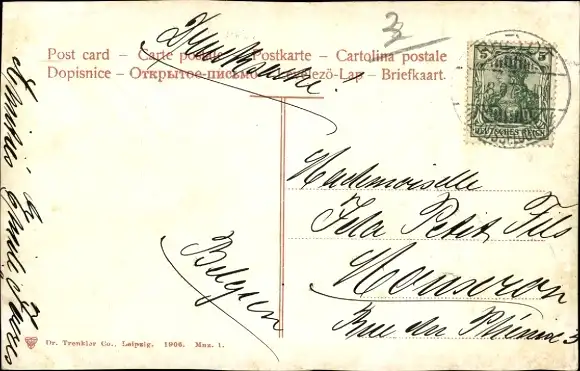 3
Post card – Carte postale – Postkarte – Cartolina postale
Dopisnice – Открытое письмо – Levelezö-Lap – Briefkaart.
Drucksache.
5 5
DEUTSCHES REICH
Mademoiselle
Petit Fils
Mouscron
Rue du
Belgien
Amitiés
Dr. Trenkler Co., Leipzig. 1906. Mnz. 1.